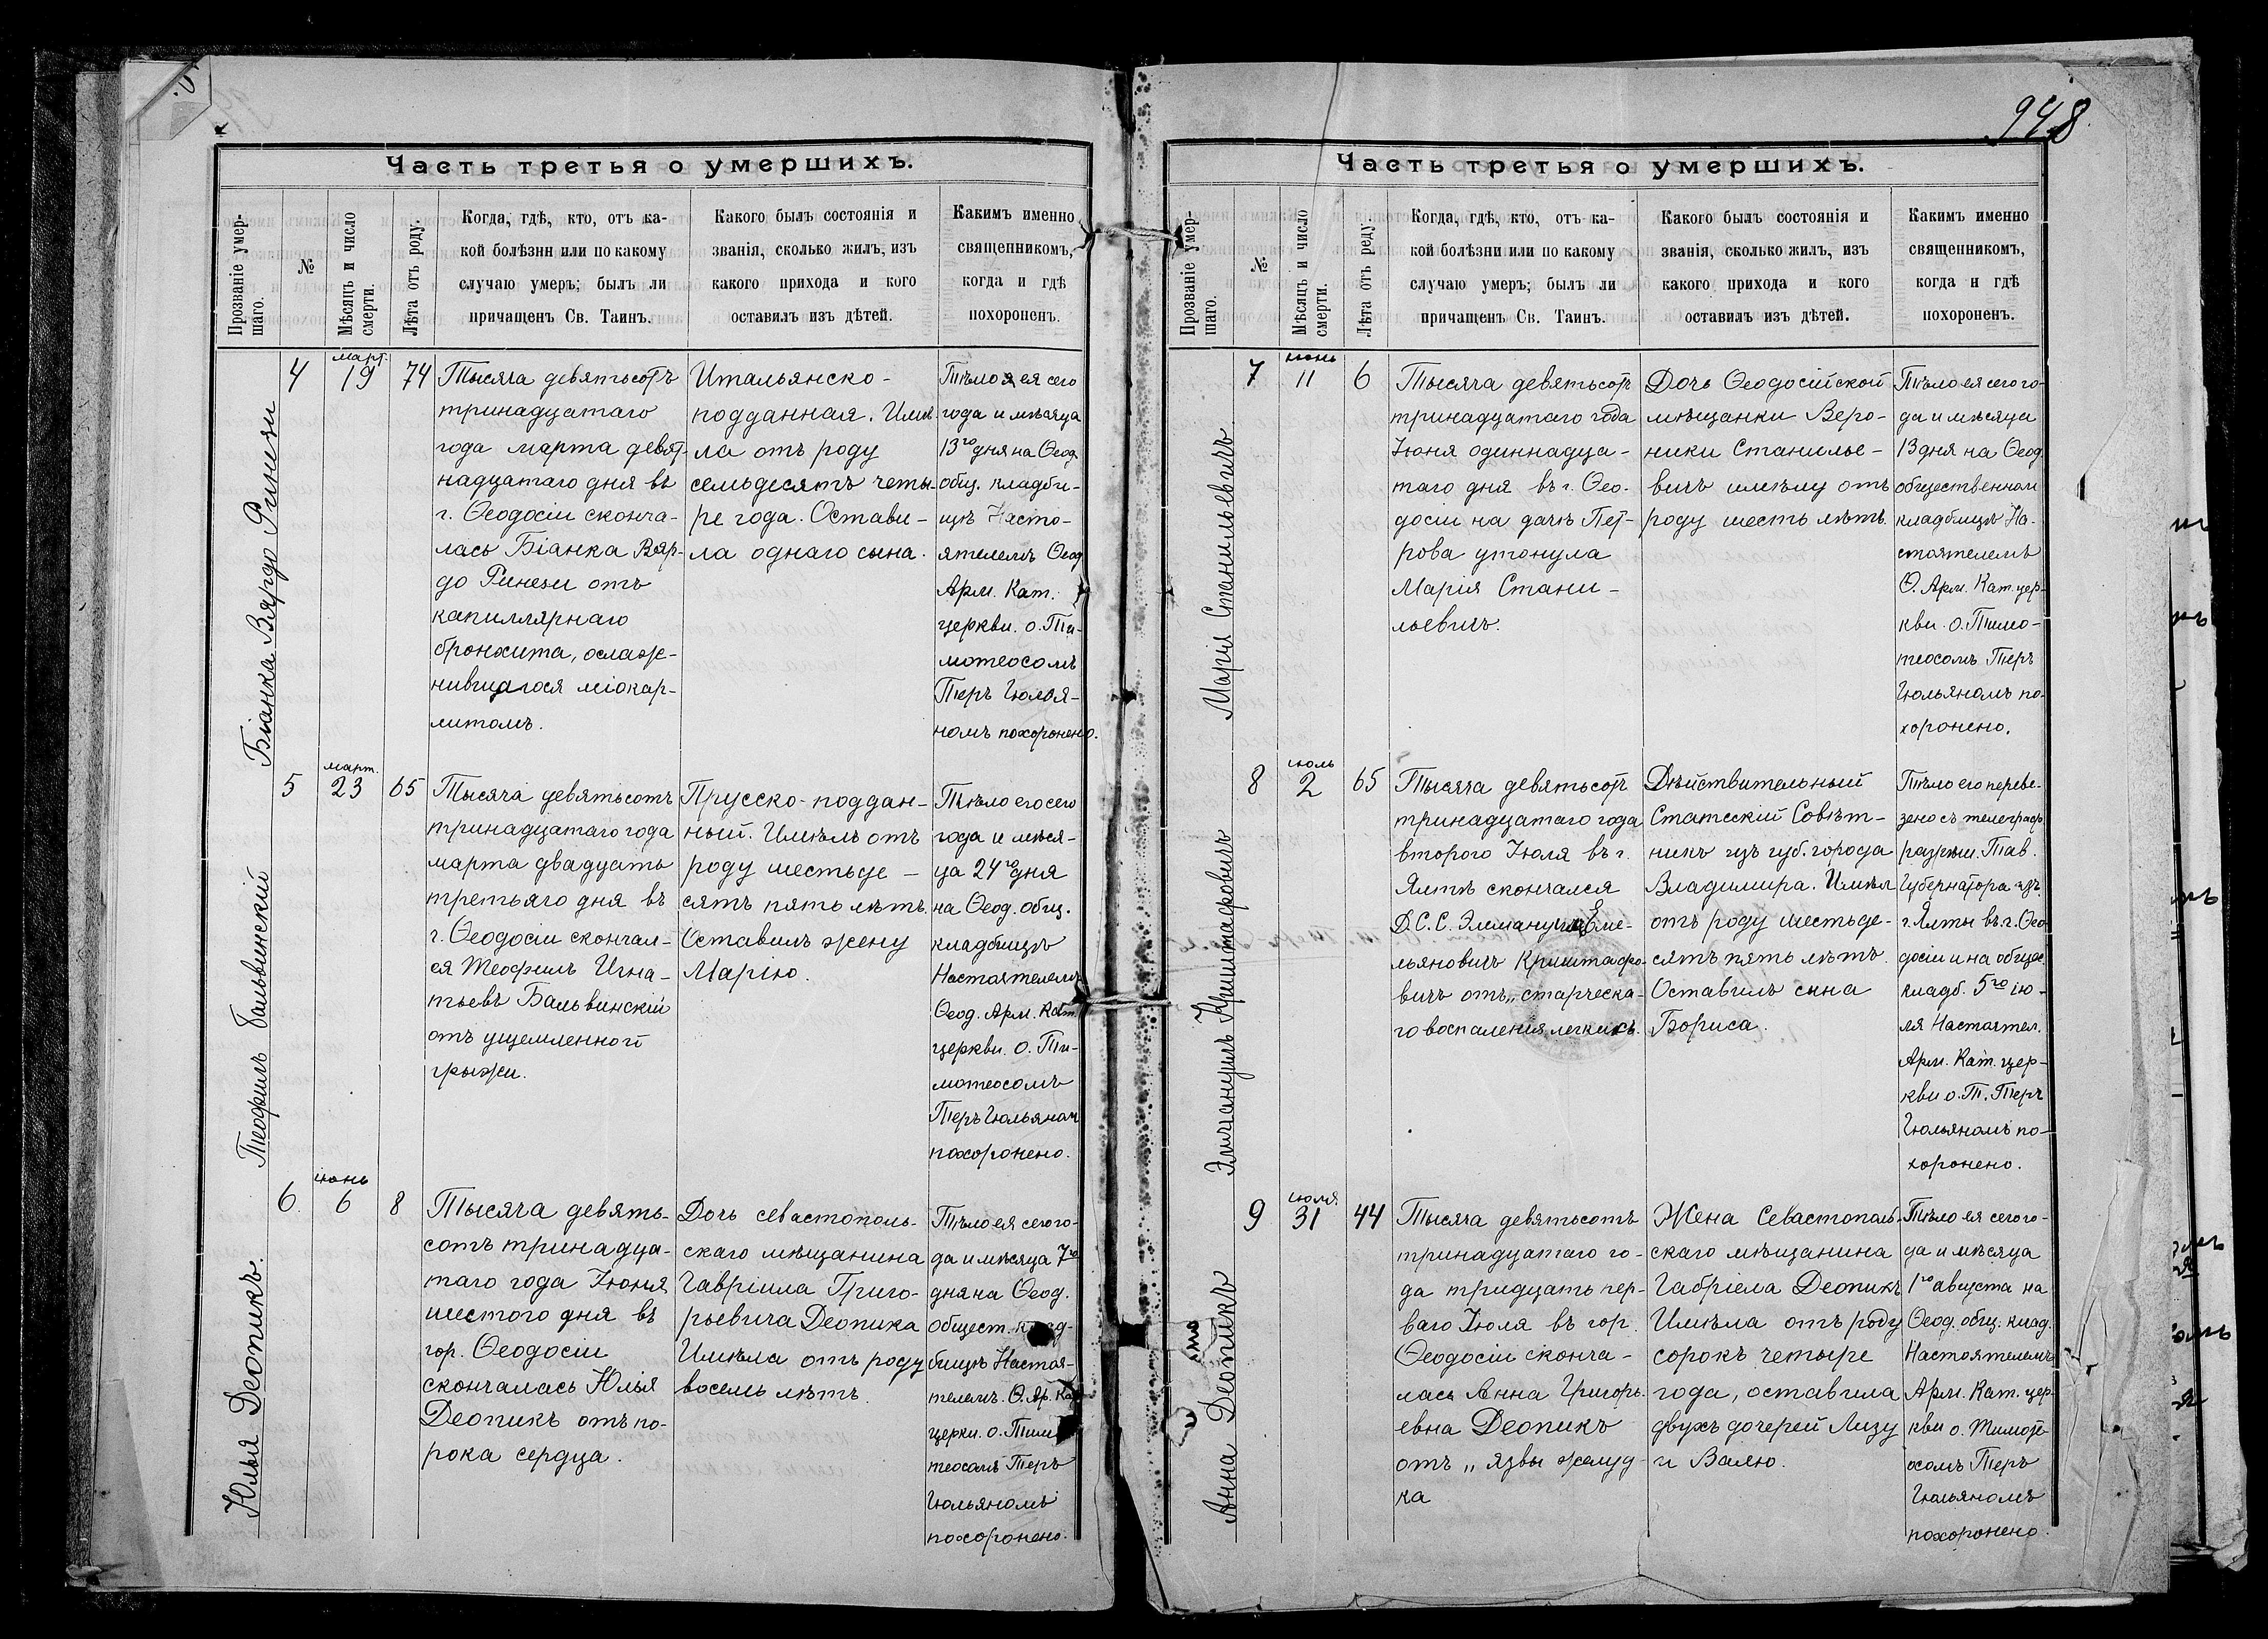 948
Часть третья о умершихъ.
Прозваніе умер-
шаго.
№
Мѣсяцъ и число
смерти.
Лѣта отъ роду.
Когда, гдѣ, кто, отъ ка-
кой болѣзни или по какому
случаю умеръ; былъ ли
причащенъ Св. Таинъ.
Какого былъ состоянія и
званія, сколько жилъ, изъ
какого прихода и кого
оставилъ изъ дѣтей.
Какимъ именно
священникомъ,
когда и гдѣ
похороненъ.
Біанка Вярдо Ринези
4
март.
19
74
Тысяча девятьсотъ
тринадцатаго
года марта девят-
надцатаго дня въ
г. Ѳеодосіи сконча-
лась Біанка Вяр-
до Ринези отъ
капиллярнаго
бронхита, ослож-
нившагося міокар-
литомъ.
Итальянско-
подданная. Имѣ-
ла отъ роду
семьдесятъ четы-
ре года. Остави-
ла однаго сына.
Тѣло ея сего
года и мѣсяца
13го дня на Ѳеод.
общ. кладби-
щѣ Насто-
ятелемъ Ѳеод
Арм. Кат.
церкви. о. Ти-
мотеосомъ
Теръ Гюлоя-
номъ похоронено.
Теофилъ Бальвинскій
5
март.
23
65
Тысяча девятьсотъ
тринадцатаго года
марта двадцать
третьяго дня въ
г. Ѳеодосіи скончал-
ся Теофилъ Игна-
тьевъ Бальвинскій
отъ ущемленной
грыжи.
Прусско-поддан-
ный. Имѣлъ отъ
роду шестьде-
сятъ пять лѣтъ.
Оставилъ жену
Марію.
Тѣло его сего
года и мѣся-
ца 24го дня
на Ѳеод. общ.
кладбищѣ
Настоятелемъ
Ѳеод. Арм. Кат.
церкви. о. Ти-
мотеосомъ
Теръ Гюльяном
похоронено.
Юлья Деопикъ.
6.
іюнь
6
8
Тысяча девять-
сотъ тринадца-
таго года Іюня
шестого дня въ
гор. Ѳеодосіи
скончалась Юлья
Деопикъ отъ по-
рока сердца.
Дочь севастополь-
скаго мѣщанина
Гавріила Григо-
рьевича Деопика
Имѣла отъ роду
восемь лѣтъ.
Тѣло ея сего го-
да и мѣсяца 7го
дня на Ѳеод.
общест. клад-
бищѣ Настоя-
телемъ. Ѳ. Ар. Кат
церкви. о. Тимо
теосомъ Теръ
Гюльяномъ
похоронено.
Часть третья о умершихъ.
Прозваніе умер-
шаго.
№
Мѣсяцъ и число
смерти.
Лѣта отъ роду.
Когда, гдѣ, кто, отъ ка-
кой болѣзни или по какому
случаю умеръ; былъ ли
причащенъ Св. Таинъ.
Какого былъ состоянія и
званія, сколько жилъ, изъ
какого прихода и кого
оставилъ изъ дѣтей.
Какимъ именно
священникомъ,
когда и гдѣ
похороненъ.
Марія Станильевичъ
7
іюнь
11
6
Тысяча девятьсотъ
тринадцатаго года
Іюня одиннадца-
таго дня въ г. Ѳео-
досіи на дачѣ Пет-
рова утонула
Марія Стани-
льевичъ.
Дочь Ѳеодосійской
мѣщанки Веро-
ники Станилье-
вичъ имѣлу отъ
роду шесть лѣтъ.
Тѣло ея сего го-
да и мѣсяца
13 дня на Ѳеод
общественном
кладбищѣ На-
стоятелемъ
Ѳ. Арм. Кат. цер-
кви. о. Тимо-
теосомъ Теръ
Гюльяномъ по-
хоронено.
Эммануилъ Криштафовичъ
8
іюль
2
65
Тысяча девятьсотъ
тринадцатаго года
второго Іюля въ г.
Ялтѣ скончался
Д. С. С. Эммануилъ Еме-
льяновичъ Криштафо-
вичъ отъ „старческа-
го воспаленія легкихъ.
Дѣйствительный
Статскій Совѣт-
никъ изъ губ. города
Владимира. Имѣл
отъ роду шестьде-
сятъ пять лѣтъ.
Оставилъ сына
Бориса.
Тѣло его переве-
зено съ телеграф
разрѣш. Тав.
Губернатора изъ
г. Ялты въ г. Ѳео-
досіи и на общес.
кладб. 5го ію-
ля Настоятел.
Арм. Кат. цер-
кви о. Т. Теръ
Гюльяномъ по-
хоронено.
Анна Деопикъ
9
іюля
31
44
Тысяча девятьсотъ
тринадцатаго го-
да тридцать пер-
ваго Іюля въ гор.
Ѳеодосіи сконча-
лась Анна Григорь-
евна Деопикъ
отъ „язвы желуд-
ка
Жена Севастополь-
скаго мѣщанина
Габріела Деопикъ
Имѣла отъ роду
сорокъ четыре
года, оставила
двухъ дочерей Лизу
и Валю.
Тѣло ея сего го-
да и мѣсяца
1го августа на
Ѳеод. общ. клад.
Настоятелемъ
Арм. Кат. цер-
кви о. Тимоте-
осомъ Теръ
Гюльяномъ
похоронено.